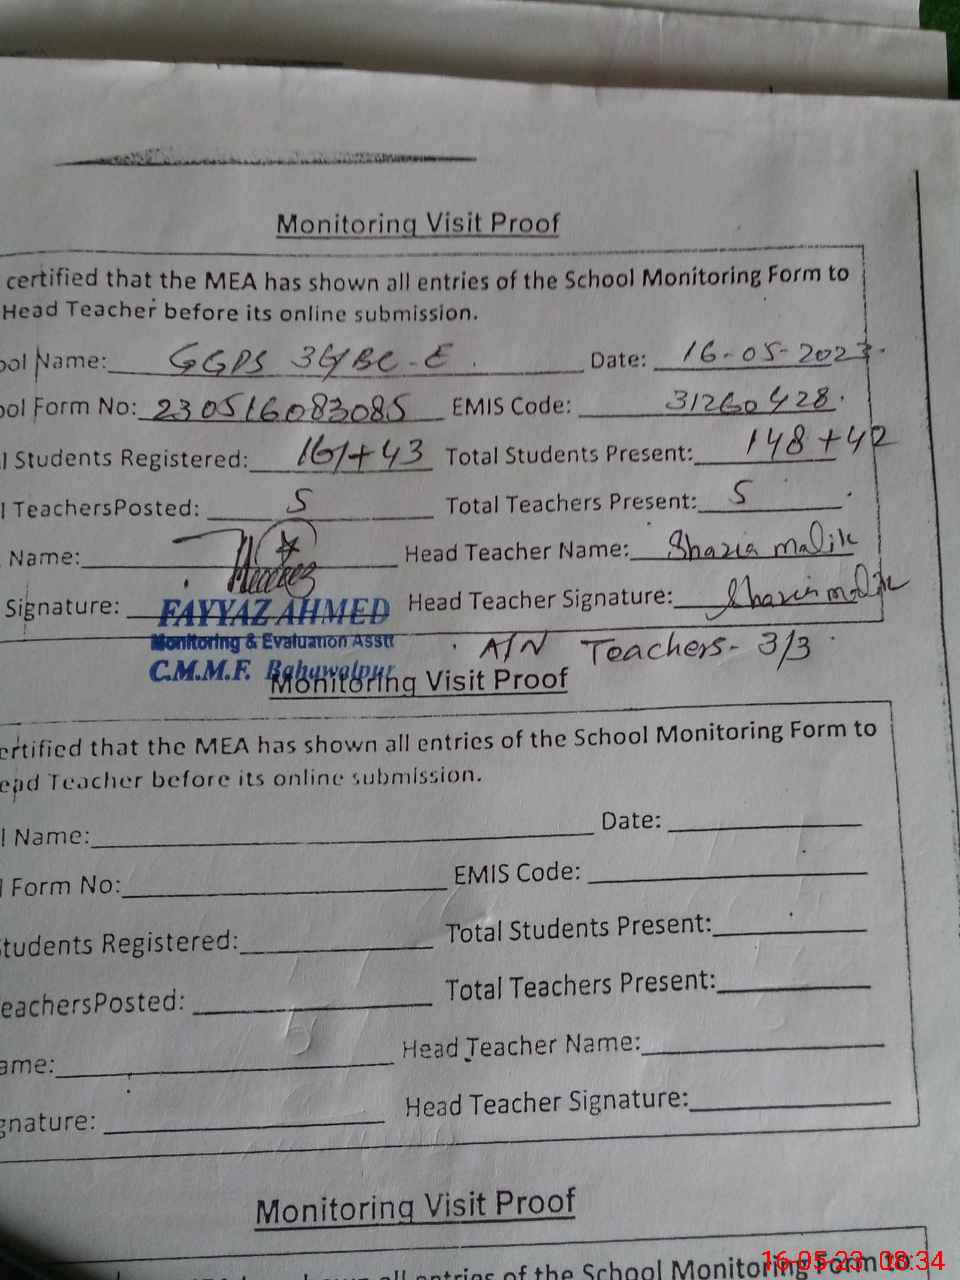 Monitoring Visit Proof
certified that the MEA has shown all entries of the School Monitoring Form to
Head Teacher before its online submission.
ool Name: GGPS 34/BC-E. Date: 16-05-2023.
ool Form No: 230516083085 EMIS Code: 31260428.
l Students Registered: 161+43 Total Students Present: 148+42
l TeachersPosted: 5 Total Teachers Present: 5
Name: Head Teacher Name: Shazia malik
Signature: Head Teacher Signature: Shazia malik
FAYYAZ AHMED
Monitoring & Evaluation Asstt
C.M.M.F. Bahawalpur
A/N Teachers- 3/3
Monitoring Visit Proof
ertified that the MEA has shown all entries of the School Monitoring Form to
ead Teacher before its online submission.
l Name: Date:
l Form No: EMIS Code:
Students Registered: Total Students Present:
eachersPosted: Total Teachers Present:
ame: Head Teacher Name:
gnature: Head Teacher Signature:
Monitoring Visit Proof
all entries of the School Monitoring Form to
16-05-23 08:34